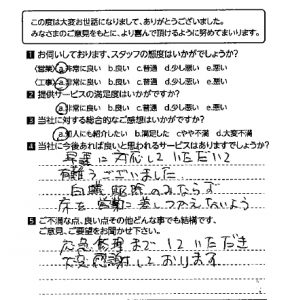 この度は大変お世話になりまして、ありがとうございました。
みなさまのご意見をもとに、より喜んで頂けるように努めてまいります。
1 お伺いしております、スタッフの態度はいかがでしょうか?
〈営業〉 a.非常に良い b.良い c.普通 d.少し悪い e.悪い
〈工事〉 a.非常に良い b.良い c.普通 d.少し悪い e.悪い
2 提供サービスの満足度はいかがですか?
a.非常に良い b.良い c.普通 d.少し悪い e.悪い
3 当社に対する総合的なご感想はいかがですか?
a.知人にも紹介したい b.満足した c.やや不満 d.大変不満
4 当社に今後あれば良いと思われるサービスはありますでしょうか?
早速に対応していただいて
有難うございました。
白蟻駆除のみならず
床を 差しつかえないよう
5 ご不満な点、良い点その他どんな事でも結構です。
ご意見、ご要望をお聞かせ下さい。
応急修理までしていただき
大変感謝しております